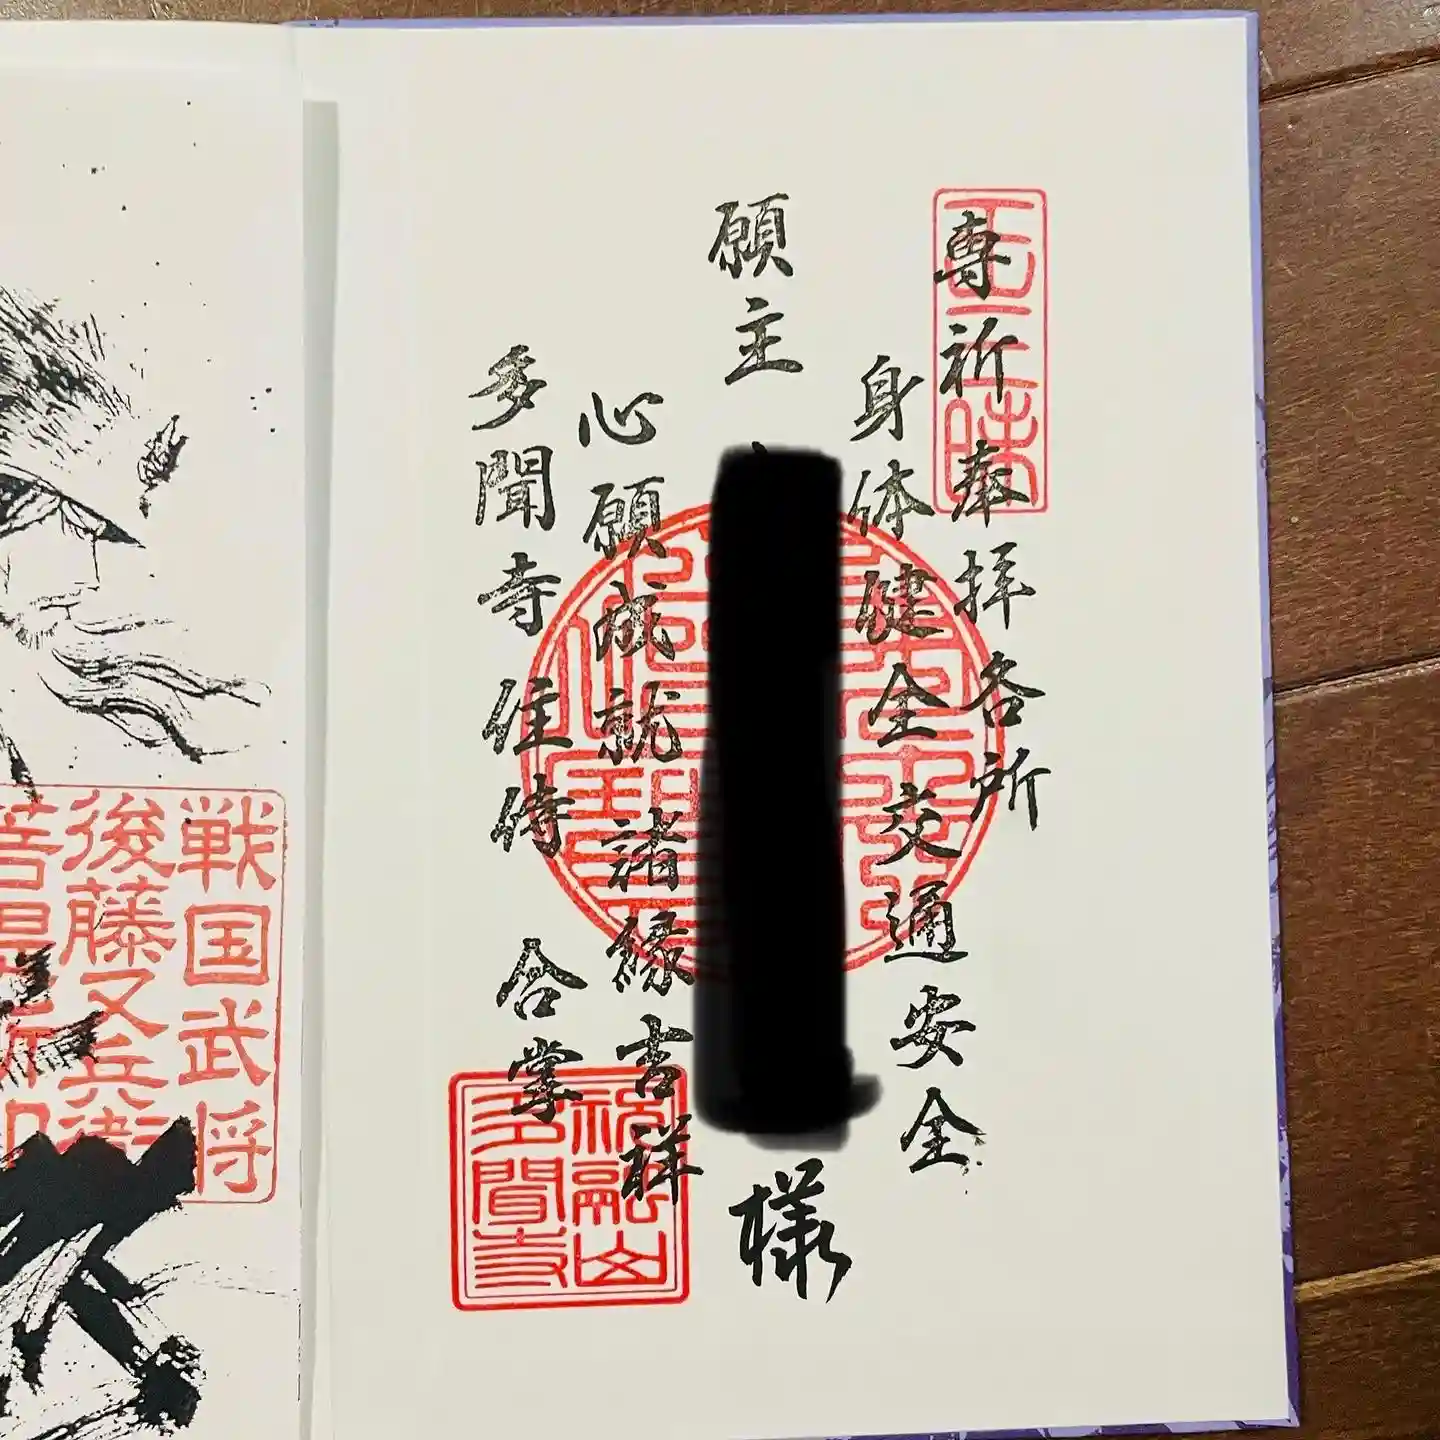 専祈 奉拝各所
身体健全 交通安全
願主 様
心願成就 諸縁吉祥
多聞寺 住侍 合掌
祝融山
多聞寺
戦国武将
後藤又兵衛